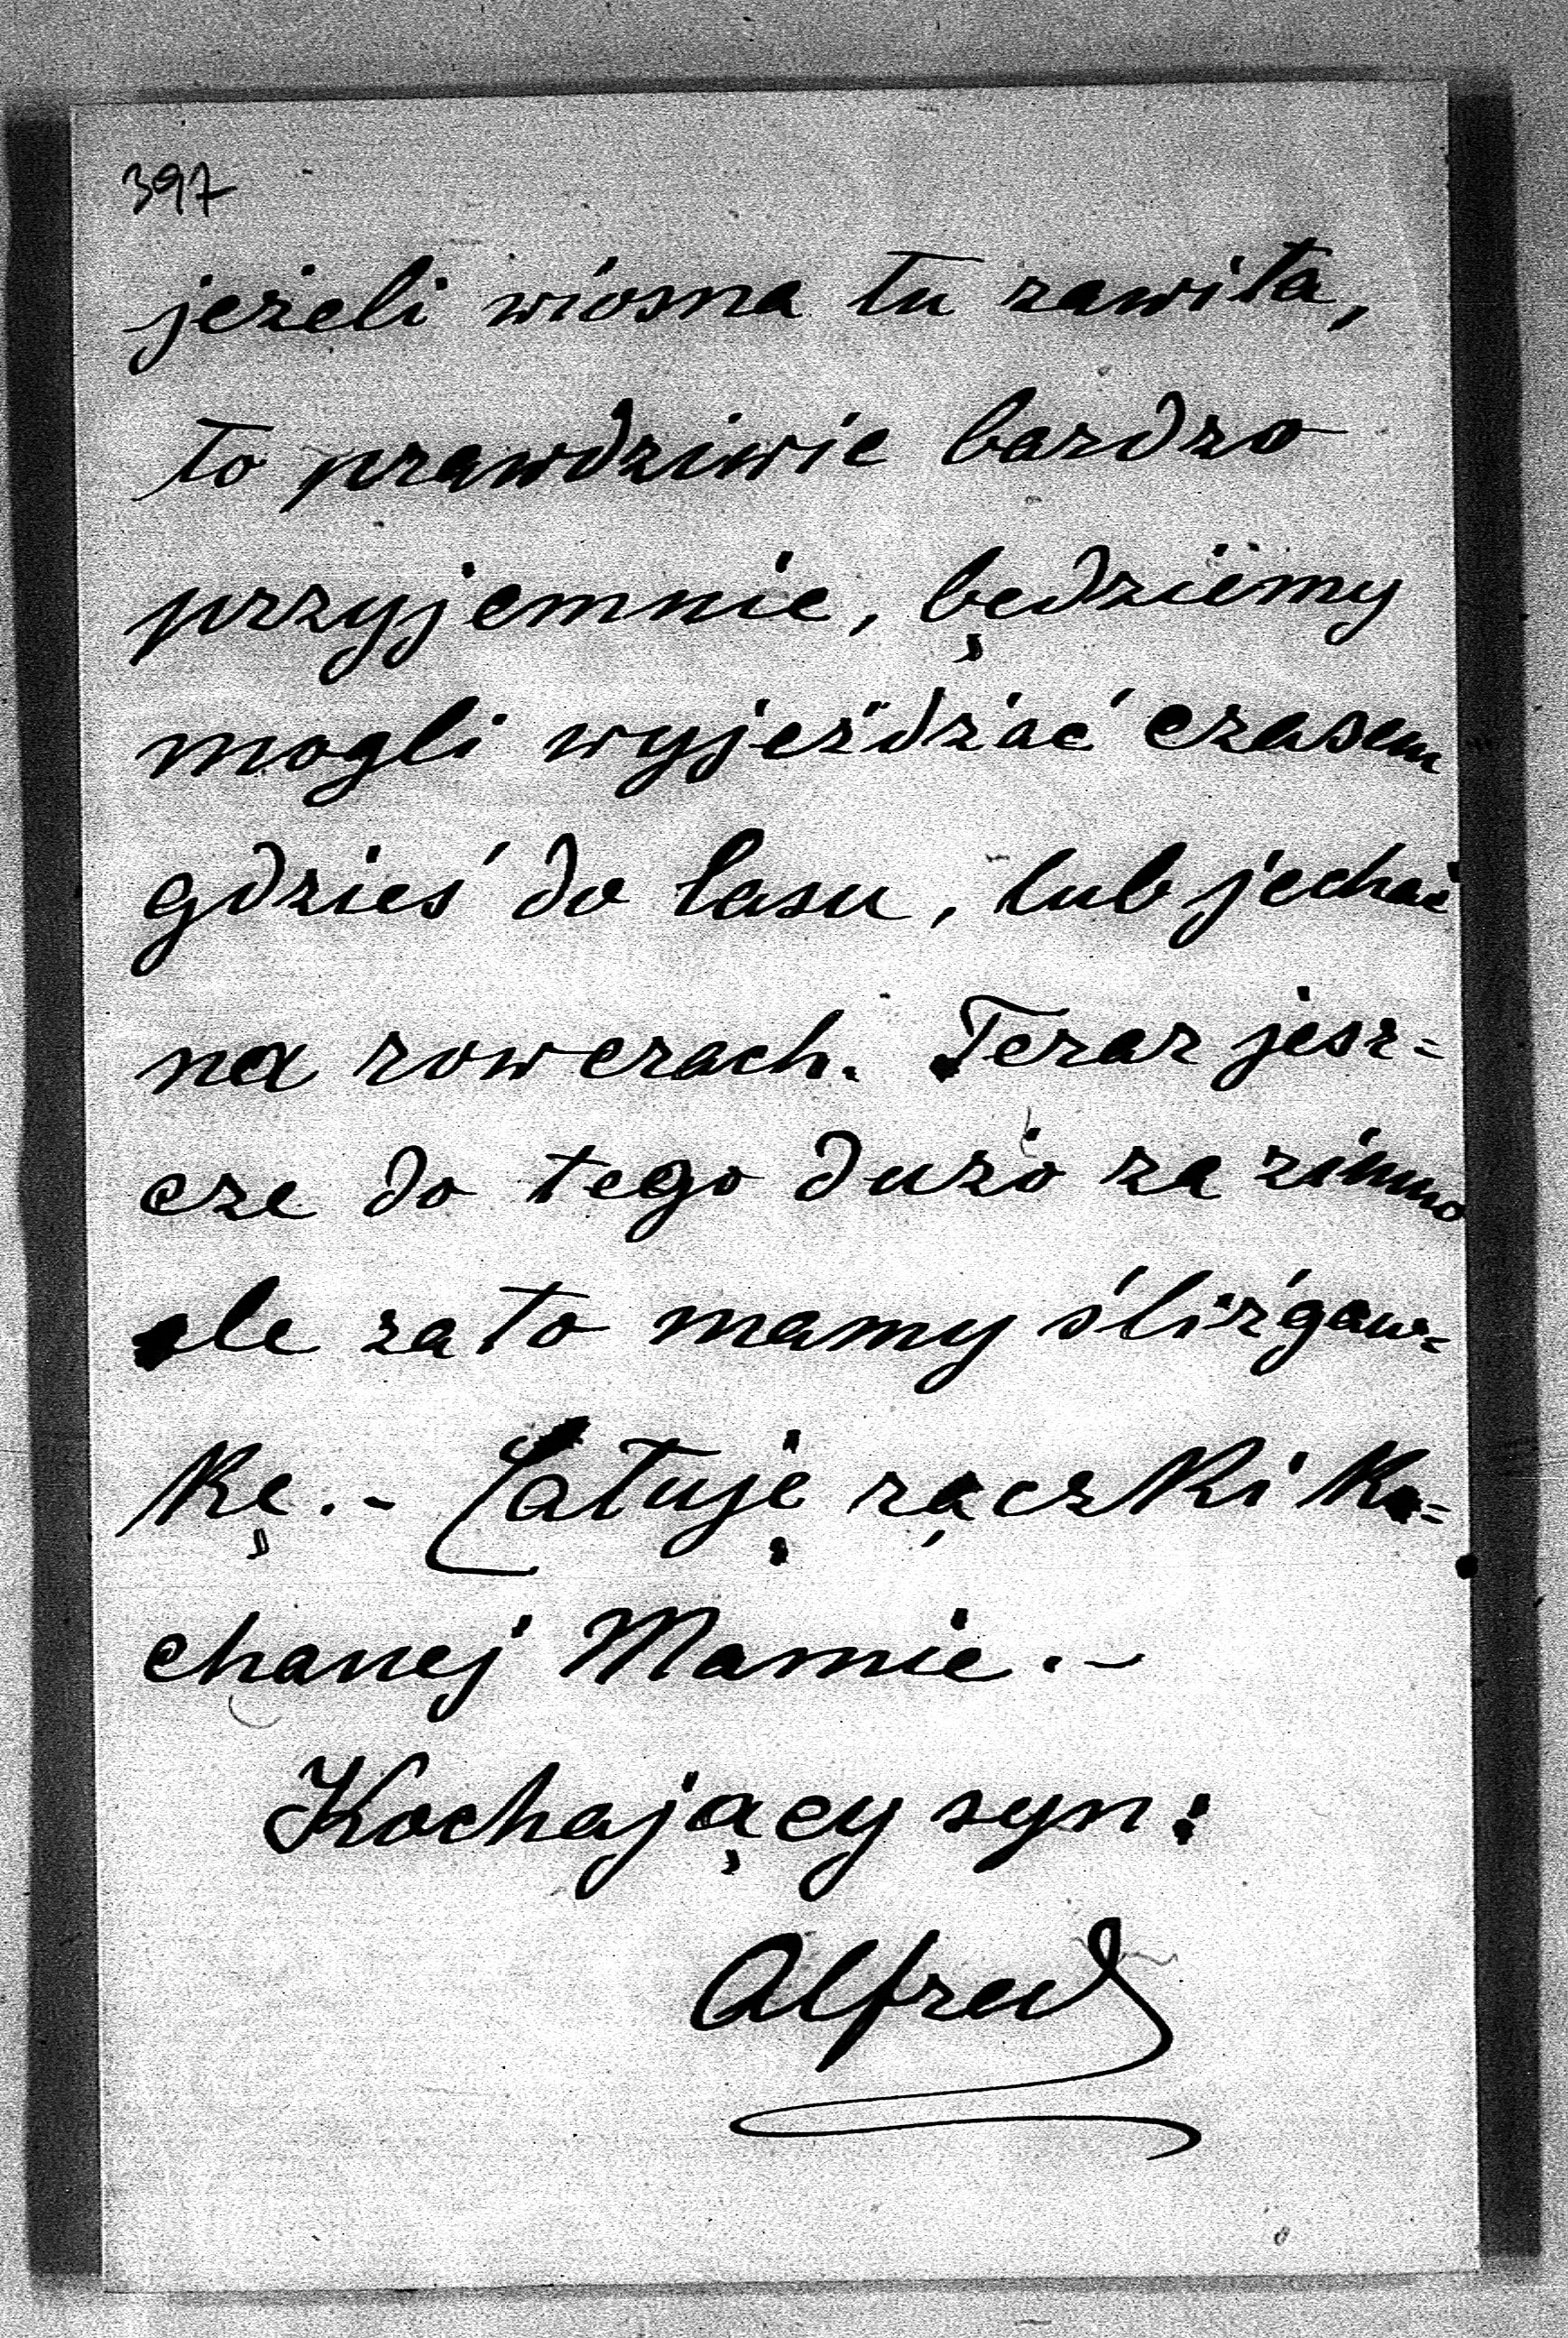 397
jeżeli wiosna tu zawita,
to prawdziwie bardzo
przyjemnie, będziemy
mogli wyjeżdżać czasem
gdzieś do lasu, lub jechać
na rowerach. Teraz jesz=
cze do tego dużo za zimno
ale zato mamy śliżgaw=
kę.- Całuję rączki Ko=
chanej Mamie.-
Kochający syn:
Alfred